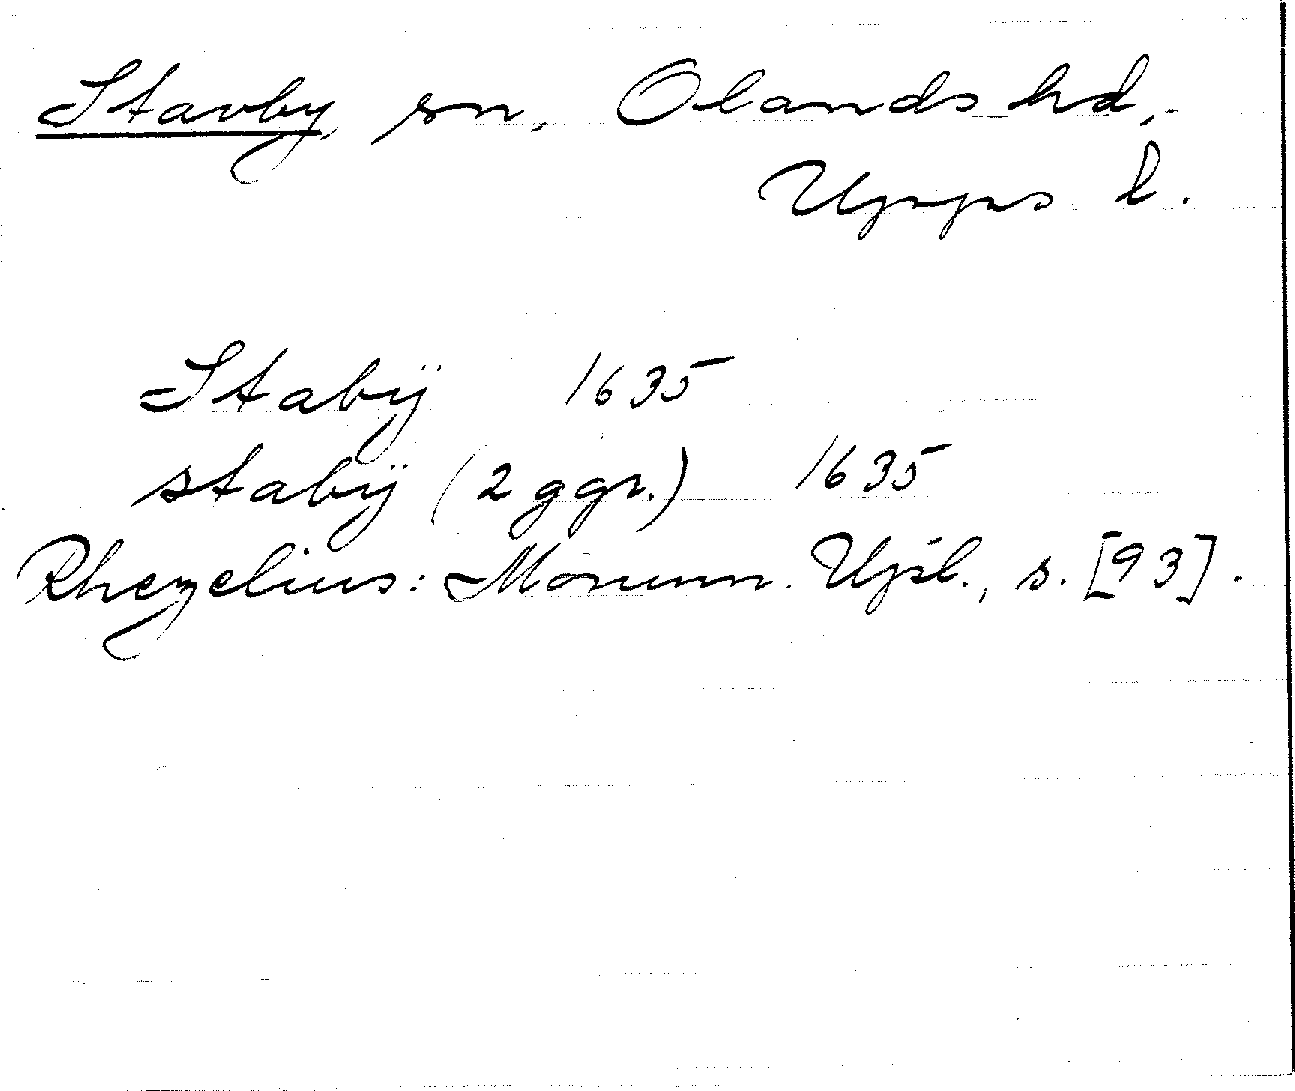 Stavby sn, Olands hd,
Upps l.
Stabÿ 1635
stabÿ (2 ggr.) 1635
Rhezelius: Monum. Upl., s. [93].